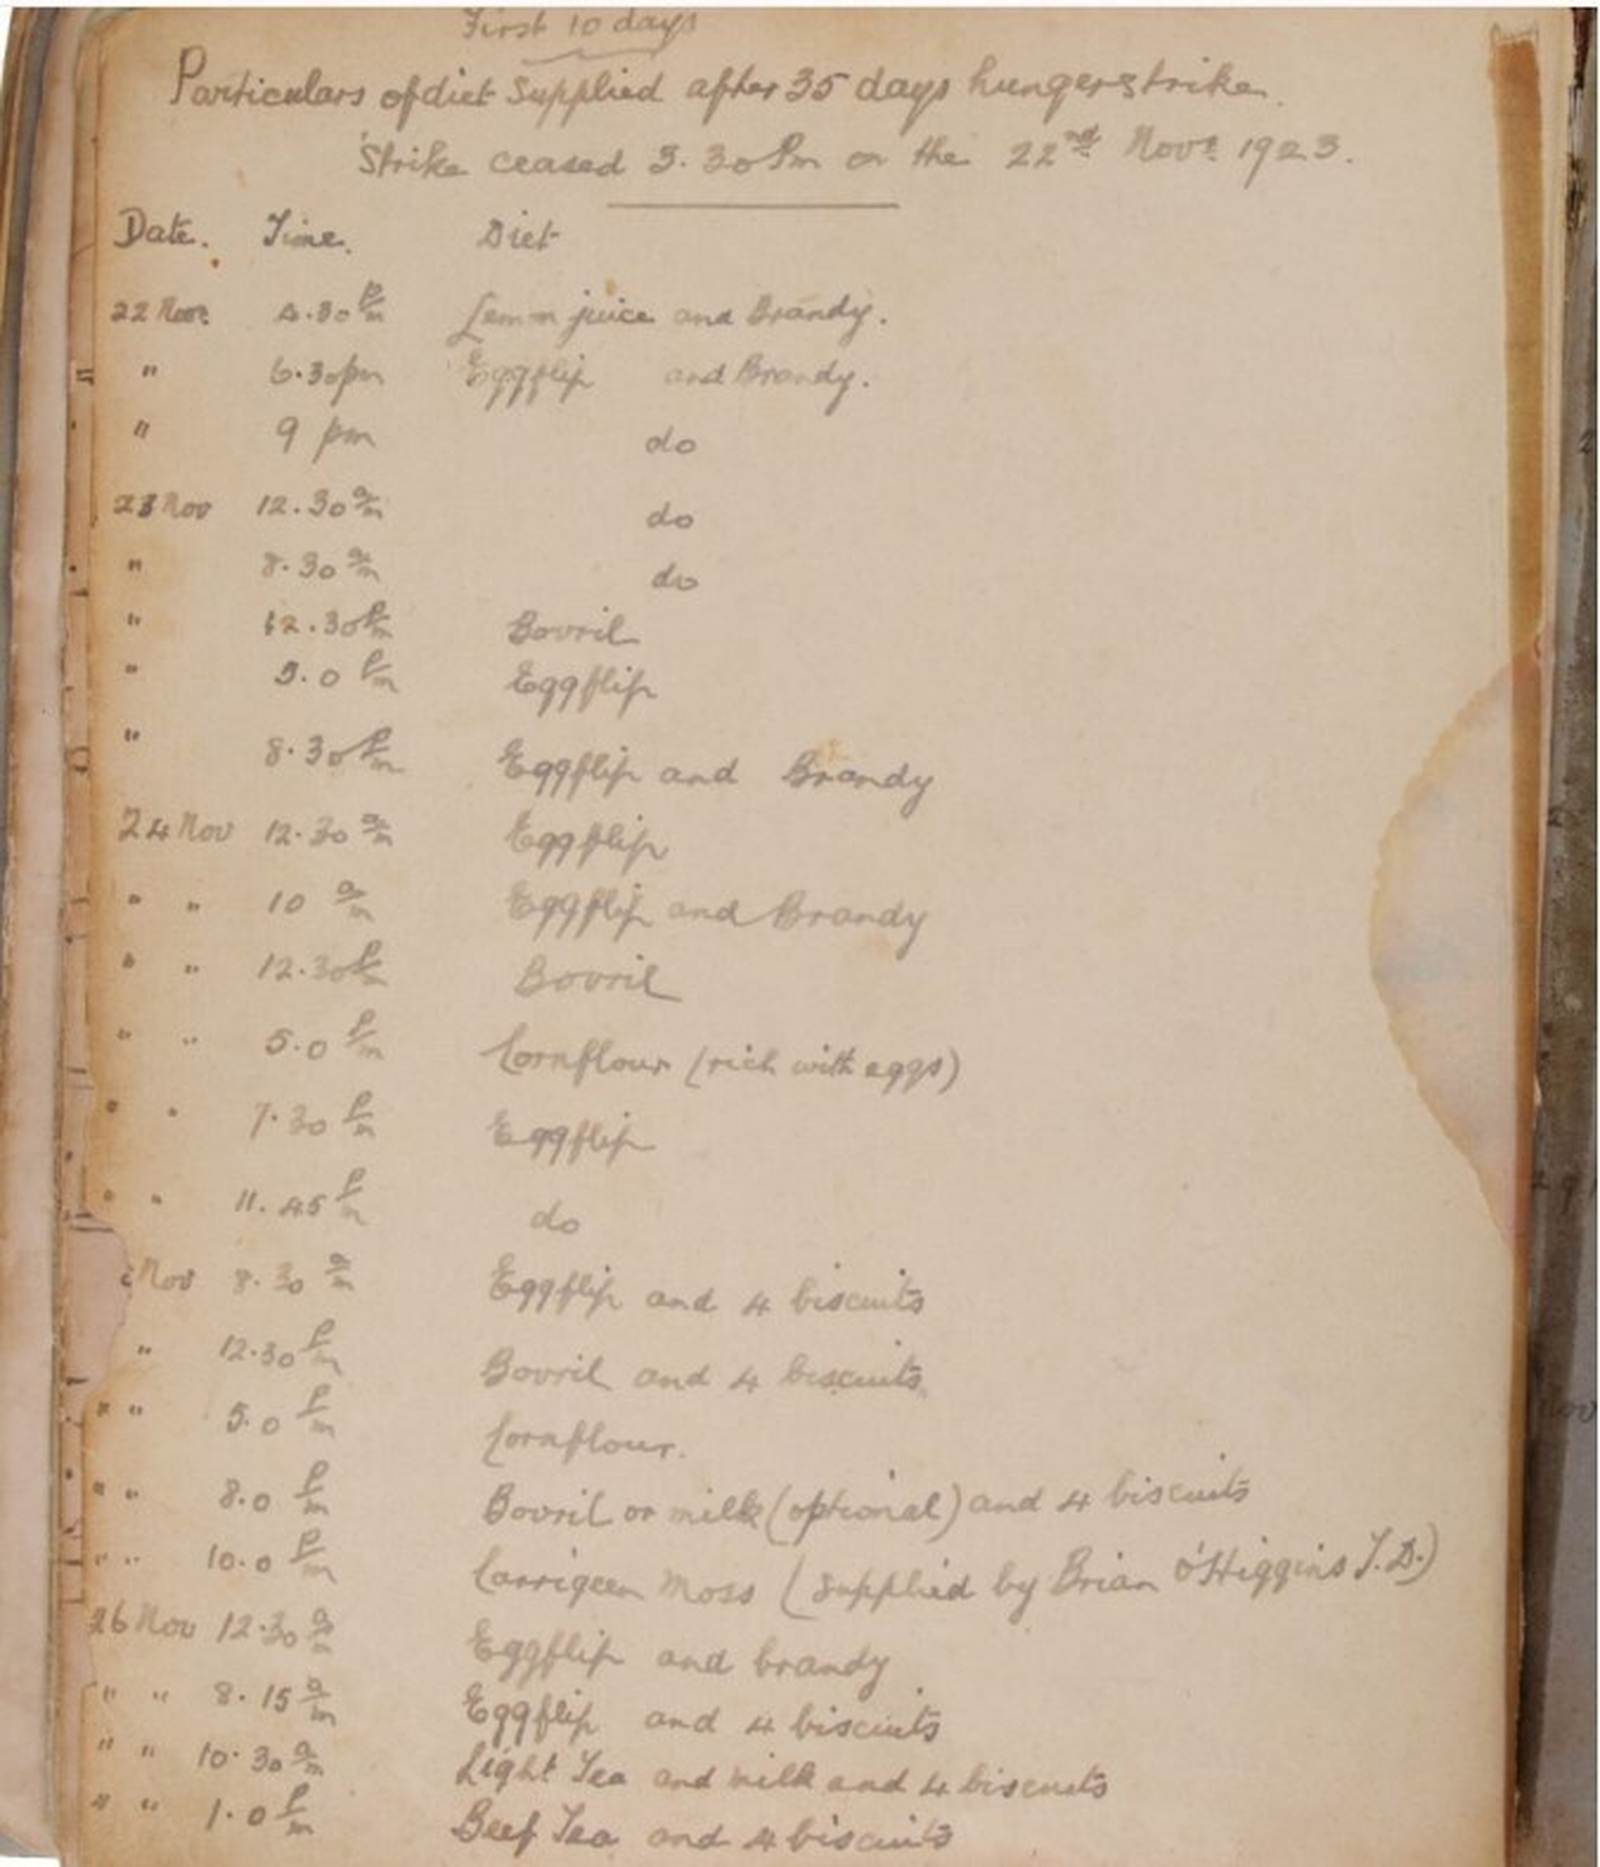 First 10 days
Particulars of diet Supplied after 35 days hungerstrike.
Strike ceased 3.30 Pm on the 22nd Novr. 1923.
Date. Time. Diet
22 Novr. 4.30 p/m Lemon juice and Brandy.
" 6.30pm Eggflip and Brandy.
" 9 pm do
23 Nov 12.30 a/m do
" 8.30 a/m do
" 12.30 p/m Bovril
" 5.0 p/m Eggflip
" 8.30 p/m Eggflip and Brandy
24 Nov 12.30 a/m Eggflip
" " 10 a/m Eggflip and Brandy
" " 12.30 p/m Bovril
" " 5.0 p/m Cornflour (rich with eggs)
" " 7.30 p/m Eggflip
" " 11.45 p/m do
Nov 8.30 a/m Eggflip and 4 biscuits
" 12.30 p/m Bovril and 4 biscuits
" " 5.0 p/m Cornflour.
" " 8.0 p/m Bovril or milk (optional) and 4 biscuits
" " 10.0 p/m Carrigeen Moss (supplied by Brian O'Higgins T.D.)
26 Nov 12.30 a/m Eggflip and brandy
" " 8.15 a/m Eggflip and 4 biscuits
" " 10.30 a/m Light Tea and milk and 4 biscuits
" " 1.0 p/m Beef Tea and 4 biscuits